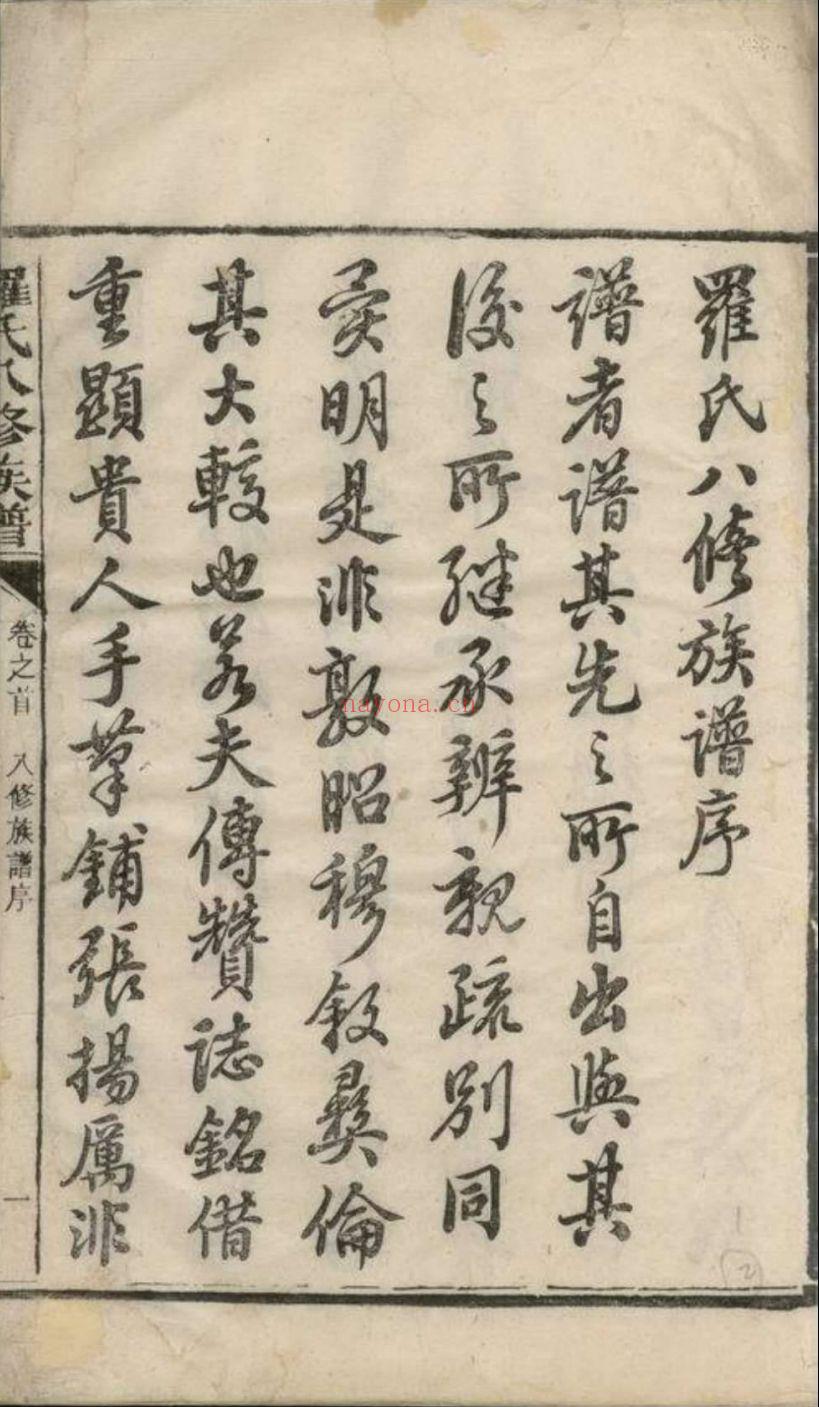 羅氏八修族譜序
譜者譜其先之所自出與其
後之所繼承辨親疏別同
異明是非敦昭穆敘彝倫
其大較也若夫傳贊誌銘借
重顯貴人手筆鋪張揚厲非
羅氏八修族譜
卷之首 八修族譜序
一
nayona.cn